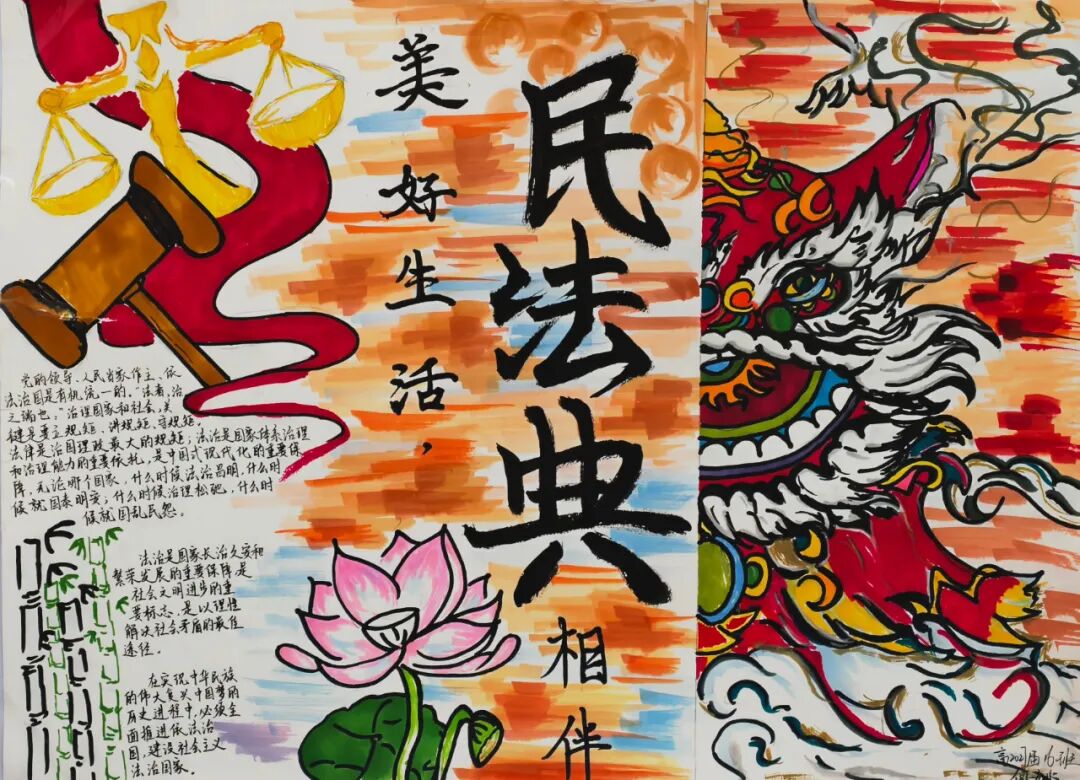 美好生活，
民法典
相伴
党的领导、人民当家作主、依
法治国是有机统一的。“法者，治
之端也。”治理国家和社会，关
键是要立规矩、讲规矩、守规矩。
法律是治国理政最大的规矩；法治是国家体系治理
和治理能力的重要依托，是中国式现代化的重要保
障，无论哪个国家，什么时候法治昌明，什么时
候就国泰明安；什么时候治理松驰，什么时
候就国乱民怨。
法治是国家长治久安和
繁荣发展的重要保障是
社会文明进步的重
要标志，是以理性
解决社会矛盾的最佳
途径。
在实现中华民族
的伟大复兴中国梦的
历史进程中，必须全
面推进依法治
国，建设社会主义
法治国家。